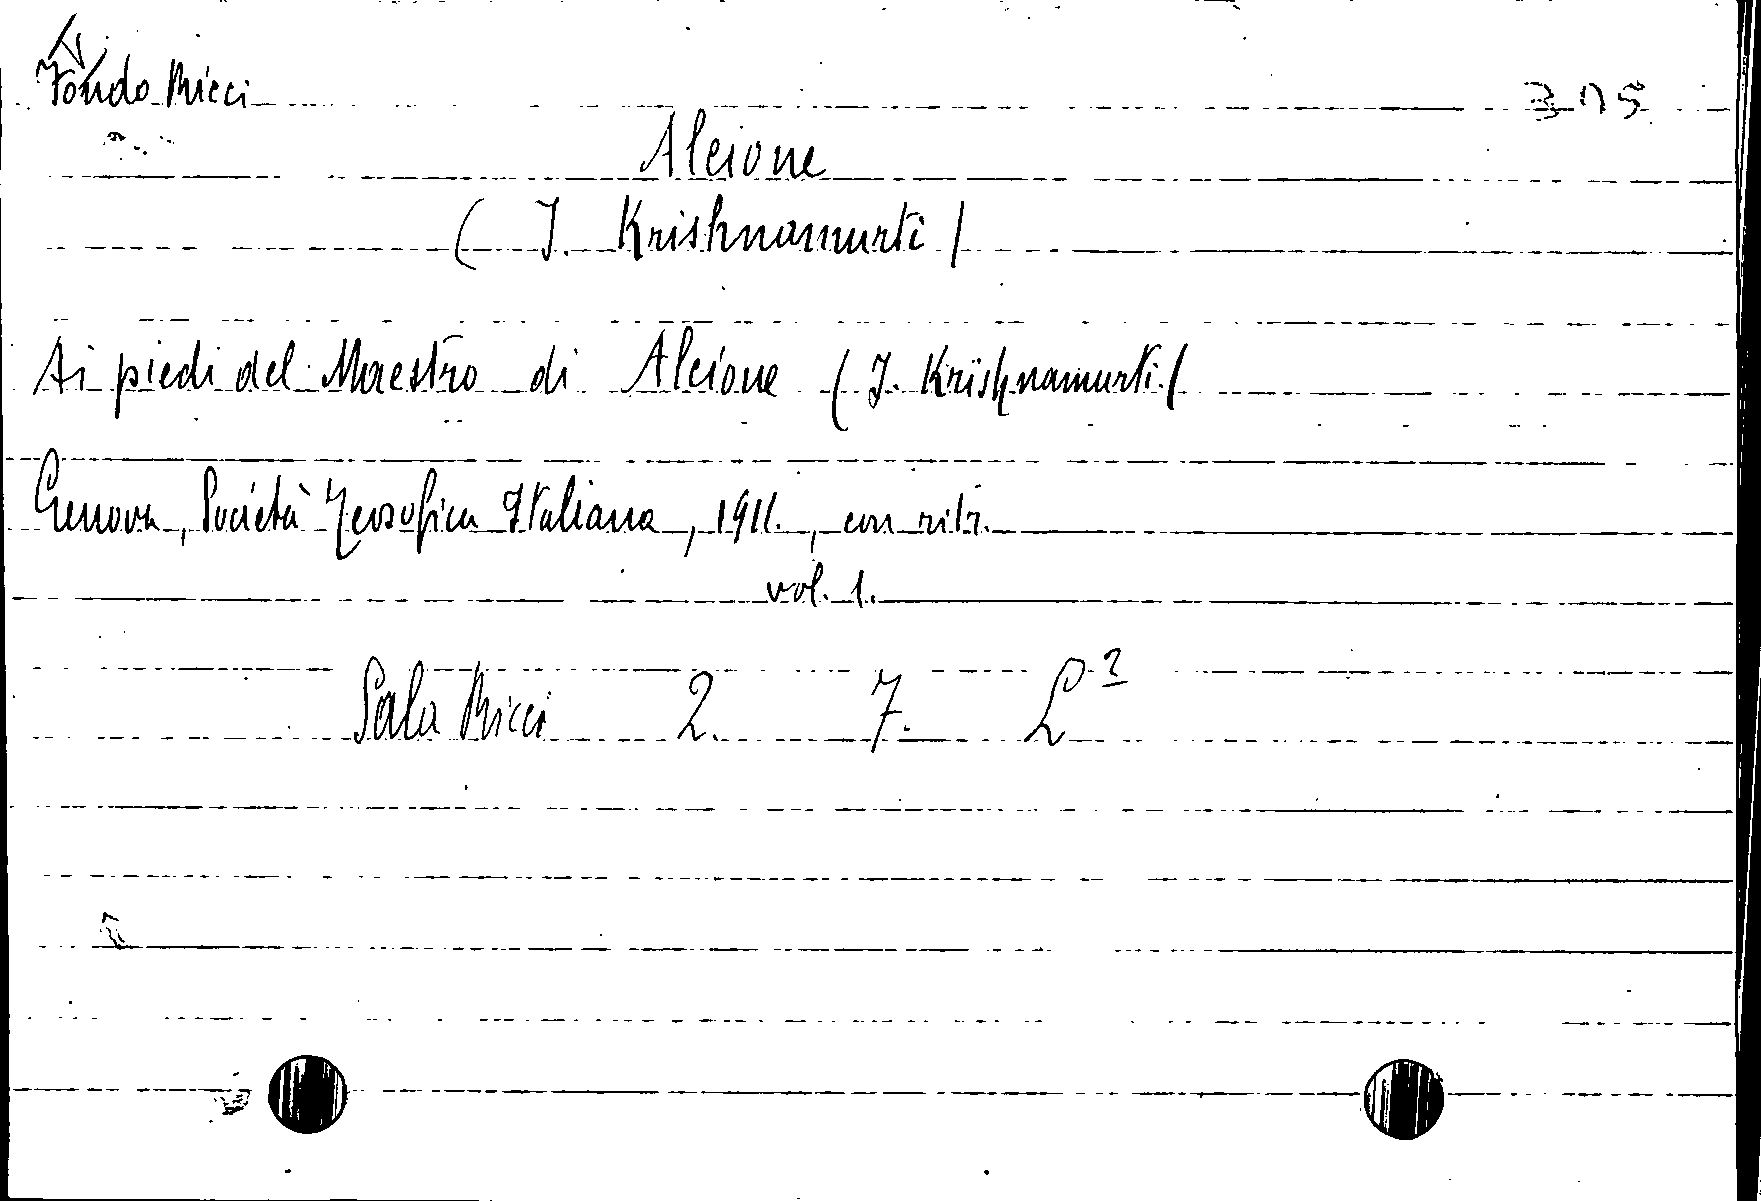 Fondo Ricci
Alcione
( J. Krishnamurti )
Ai piedi del Maestro di Alcione ( J. Krishnamurti (
Genova, Società Teosofica Italiana, 1911., con ritr.
vol. 1.
Sala Ricci 2. 7. L²